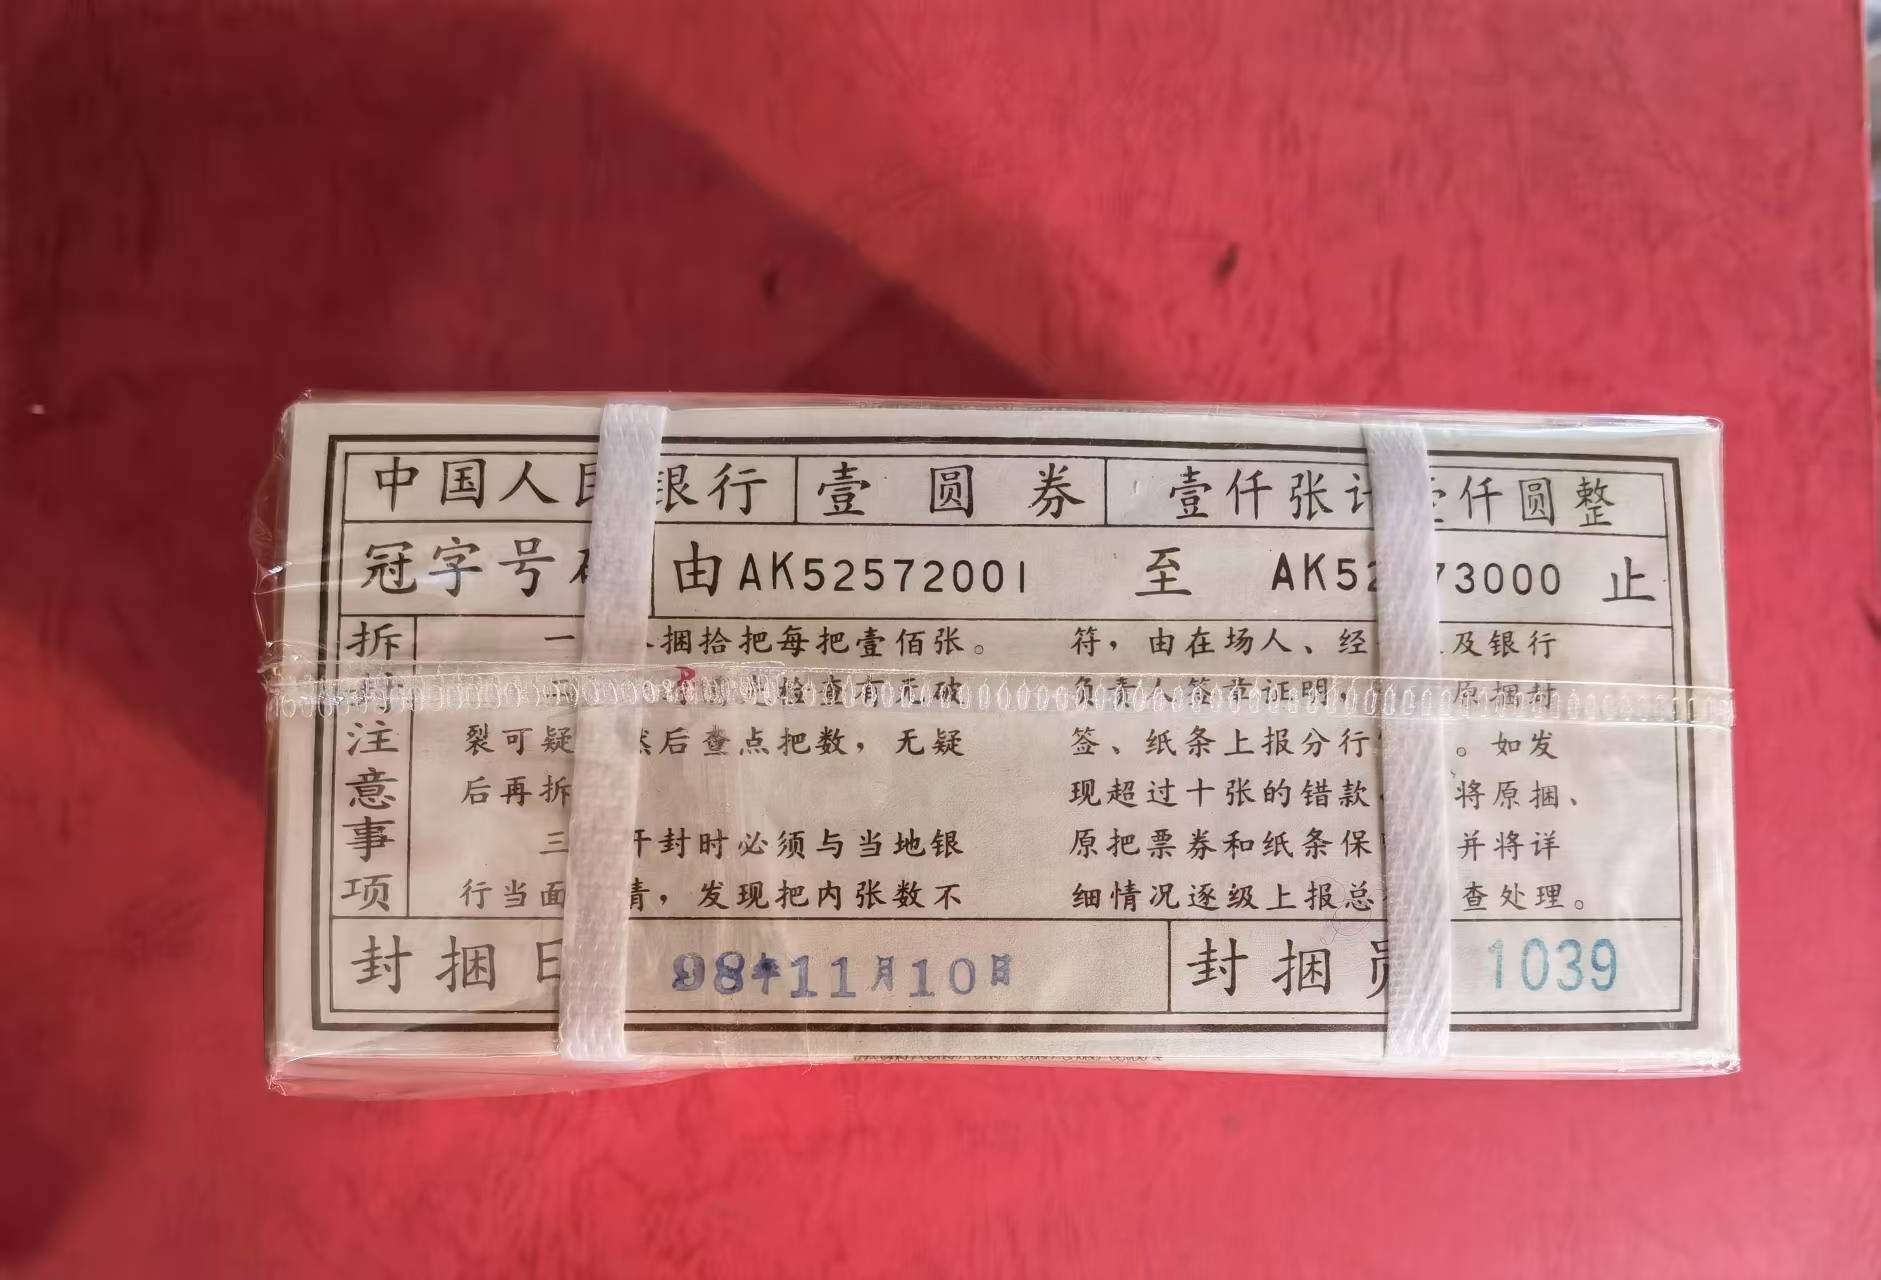 中国人民银行 壹圆券 壹仟张计壹仟圆整
冠字号 由AK52572001 至 AK52 73000 止
拆 注意事项
一 捆拾把每把壹佰张。
检查有无破
裂可疑 然后查点把数，无疑
后再拆
三 开封时必须与当地银
行当面 清，发现把内张数不
符，由在场人、经 及银行
负责人签章证明， 原捆封
签、纸条上报分行 。如发
现超过十张的错款 将原捆、
原把票券和纸条保 并将详
细情况逐级上报总 查处理。
封捆日 98年11月10日 封捆员 1039